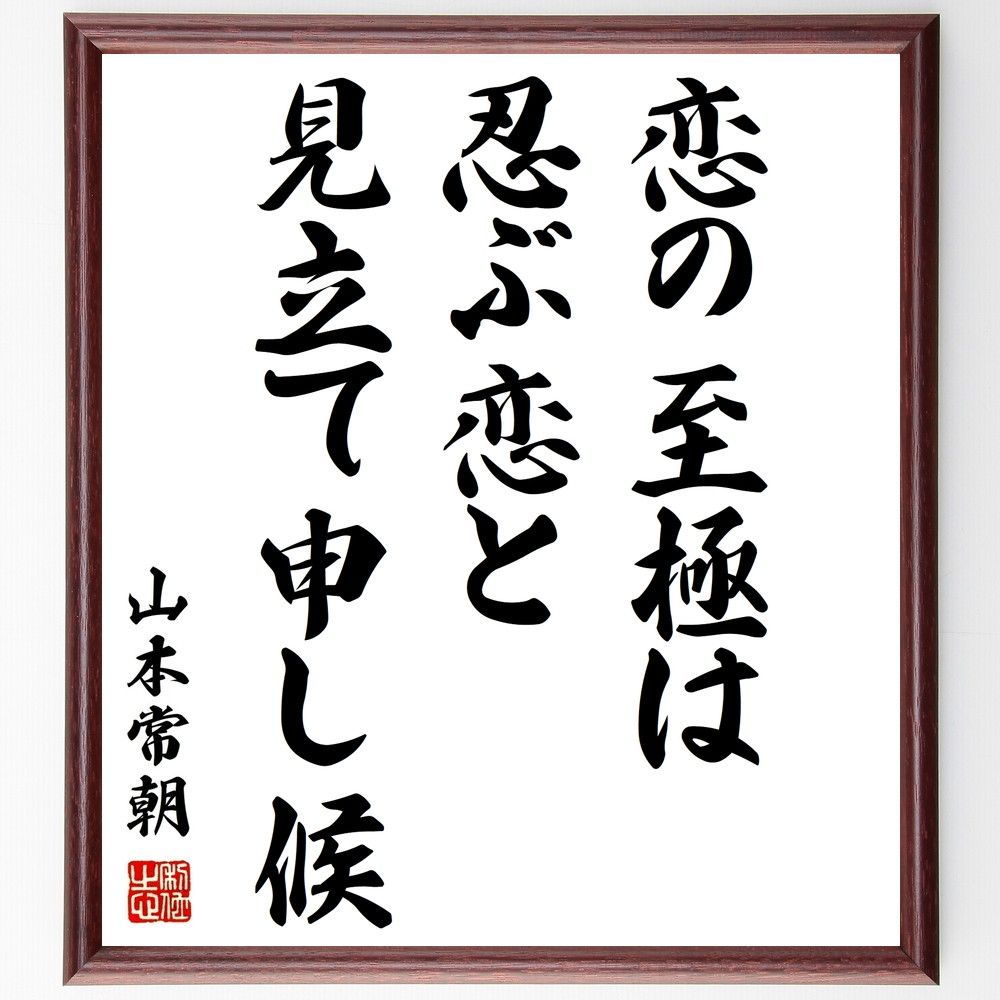 恋の至極は
忍ぶ恋と
見立て申し候
山本常朝